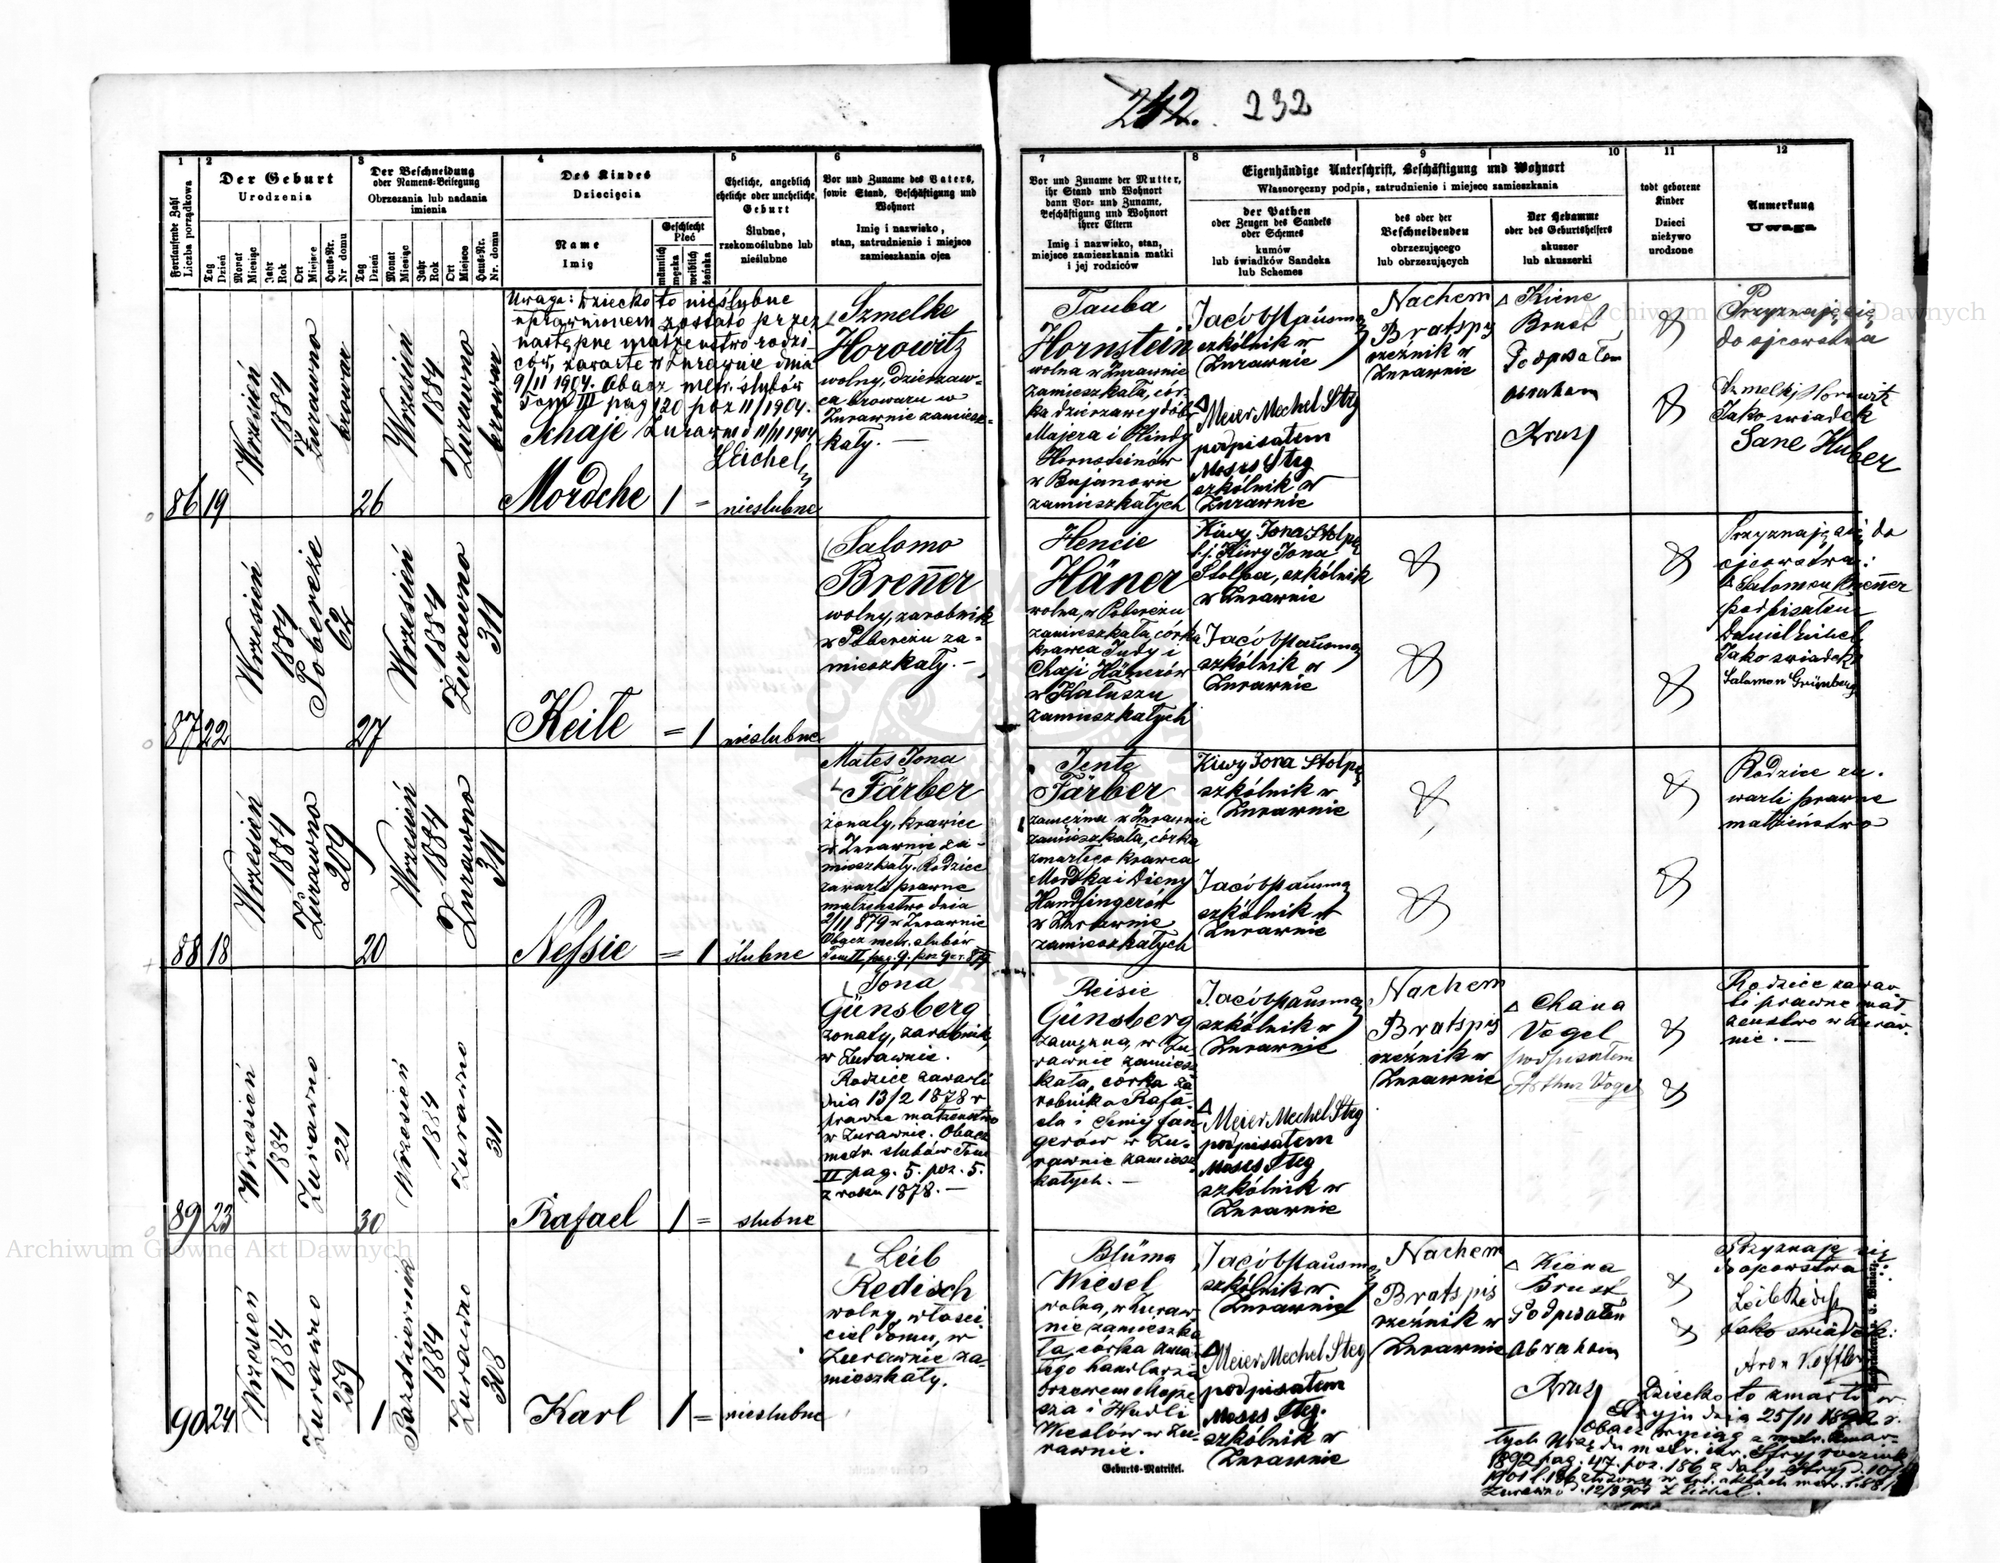 242. 232
1
Fortlaufende Zahl
Liczba porządkowa
2
Der Geburt
Urodzenia
Tag
Dzień
Monat
Miesiąc
Jahr
Rok
Ort
Miejsce
Haus-Nr.
Nr. domu
3
Der Beschneidung
oder Namens-Beilegung
Obrzezania lub nadania
imienia
Tag
Dzień
Monat
Miesiąc
Jahr
Rok
Ort
Miejsce
Haus-Nr.
Nr. domu
4
Des Kindes
Dziecięcia
Name
Imię
Geschlecht
Płeć
männlich
męzka
weiblich
żeńska
5
Eheliche, angeblich
eheliche oder uneheliche
Geburt
Ślubne,
rzekomoślubne lub
nieślubne
6
Vor und Zuname des Vaters,
sowie Stand, Beschäftigung und
Wohnort
Imię i nazwisko,
stan, zatrudnienie i miejsce
zamieszkania ojca
7
Vor und Zuname der Mutter,
ihr Stand und Wohnort
dann Vor- und Zuname,
Beschäftigung und Wohnort
ihrer Eltern
Imię i nazwisko, stan,
miejsce zamieszkania matki
i jej rodziców
8 9 10
Eigenhändige Unterschrift, Beschäftigung und Wohnort
Własnoręczny podpis, zatrudnienie i miejsce zamieszkania
der Pathen
oder Zeugen des Sandeks
oder Schemes
kumów
lub świadków Sandeka
lub Schemes
des oder der
Beschneidenden
obrzezującego
lub obrzezujących
Der Hebamme
oder des Geburtshelfers
akuszer
lub akuszerki
11
todt geborene
Kinder
Dzieci
nieżywo
urodzone
12
Anmerkung
Uwaga
86 19
Wrzesień
1884
Żurawno
browar
26
Wrzesień
1884
Żurawno
browar
Uwaga: Dziecko to nieślubne
uprawnionem zostało przez
następne małżeństwo rodzi-
ców, zawarte w Żurawnie dnia
9/11 1904. Obacz metr. ślubów
Tom III pag 120 poz 11/1904.
Żurawno d 11/11 1904
Schaje
Mordche
1 =
nieślubne
Szmelke
Horowitz
wolny, dzierżaw-
ca browaru w
Żurawnie zamiesz-
kały. —
Tauba
Hornstein
wolna w Żurawnie
zamieszkała, cór-
ka dzierżawcy dóbr
Majera i Hindy
Hornsteinów
w Bujanowie
zamieszkałych
szkólnik w
Żurawnie
Meier Mechel Steg
podpisałem
Moses Steg
szkólnik w
Żurawnie
Nachem
Bratspis
rzeźnik w
Żurawnie
Kiene
Brust
Podpisałem
Abraham
Przyznaję się
do ojcowstwa
Szmelkj Horowitz
Jako świadek
Sane Huber
87 22
Wrzesień
1884
Pobereże
62
27
Wrzesień
1884
Żurawno
311
Keile
= 1
nieślubne
Salomo
Breñer
wolny, zarobnik
w Pobereżu za-
mieszkały. —
Hencie
Häner
wolna, w Pobereżu
zamieszkała, córka
krawca Judy i
Chaji Hänerów
w Kałuszu
zamieszkałych
Kiwy Jona Stolpe
f. j. Kiwy Jona
Stolpe, szkólnik
w Żurawnie
szkólnik w
Żurawnie
Przyznaję się do
ojcowstwa:
Salomon Breñer
podpisałem
Jako świadek
Salamon Grünberg
88 18
Wrzesień
1884
Żurawno
209
20
Wrzesień
1884
Żurawno
311
Nessie
= 1
ślubne
Mates Jona
Färber
żonaty, krawiec
w Żurawnie za-
mieszkały. Rodzice
zawarli prawne
małżeństwo dnia
2/11 879 w Żurawnie
Obacz metr. ślubów
Tom II pag. 9. poz 9 z r. 879
Jente
Färber
zamężna w Żurawnie
zamieszkała, córka
zmarłego krawca
Mordka i Dieny
Handfingerów
w Żurawnie
zamieszkałych
Kiwy Jona Stolpe
szkólnik w
Żurawnie
szkólnik w
Żurawnie
Rodzice za-
warli prawne
małżeństwo
89 23
Wrzesień
1884
Żurawno
221
30
Wrzesień
1884
Żurawno
311
Rafael
1 =
slubne
Jona
Günsberg
żonaty, zarobnik,
w Żurawnie.
Rodzice zawarli
dnia 13/2 1878 r
prawne małżeństwo
w Żurawnie. Obacz
metr. slubów Tom
II pag. 5. poz. 5.
z roku 1878. —
Reisie
Günsberg
zamężna, w Żu-
rawnie zamiesz
kała, córka za
robnika Rafa-
gerów w Żu-
rawnie zamiesz
kałych. —
szkólnik w
Żurawnie
Meier Mechel Steg
podpisałem
Moses Steg
szkólnik w
Żurawnie
Nachem
Bratspis
rzeźnik w
Żurawnie
Chana
Vogel
podpisałem
Arthur Vogel
Rodzice zawar-
li prawne mał
żeństwo w Żuraw-
nie. —
90 24
Wrzesień
1884
Żurawno
259
1
Październik
1884
Żurawno
308
Karl
1 =
nieslubne
Leib
Redisch
wolny, właści
ciel domu, w
Żurawnie za-
mieszkały.
Blüma
Wiesel
wolna, w Żuraw
nie zamieszka
ła, córka zmar
łego handlarza
sza i Hudli
Wieslów w Żu-
rawnie.
szkólnik w
Żurawnie
Meier Mechel Steg
podpisałem
Moses Steg.
szkólnik w
Żurawnie
Nachem
Bratspis
rzeźnik w
Żurawnie
Kiena
Brust
Podpisałem
Abraham
Przyznaję się
do ojcowstwa
Leib Redisch
Jako świadek:
Dziecko to zmarło w
Stryju dnia 25/11 1892 r.
Obacz wyciąg z metr. zmar-
łych Urzędu metr. izr. Stryj rocznik
1892 pag. 47. poz. 186 z daty Stryj d.
Geburts-Matrikel.
Archiwum Główne Akt Dawnych
Archiwum Główne Akt Dawnych